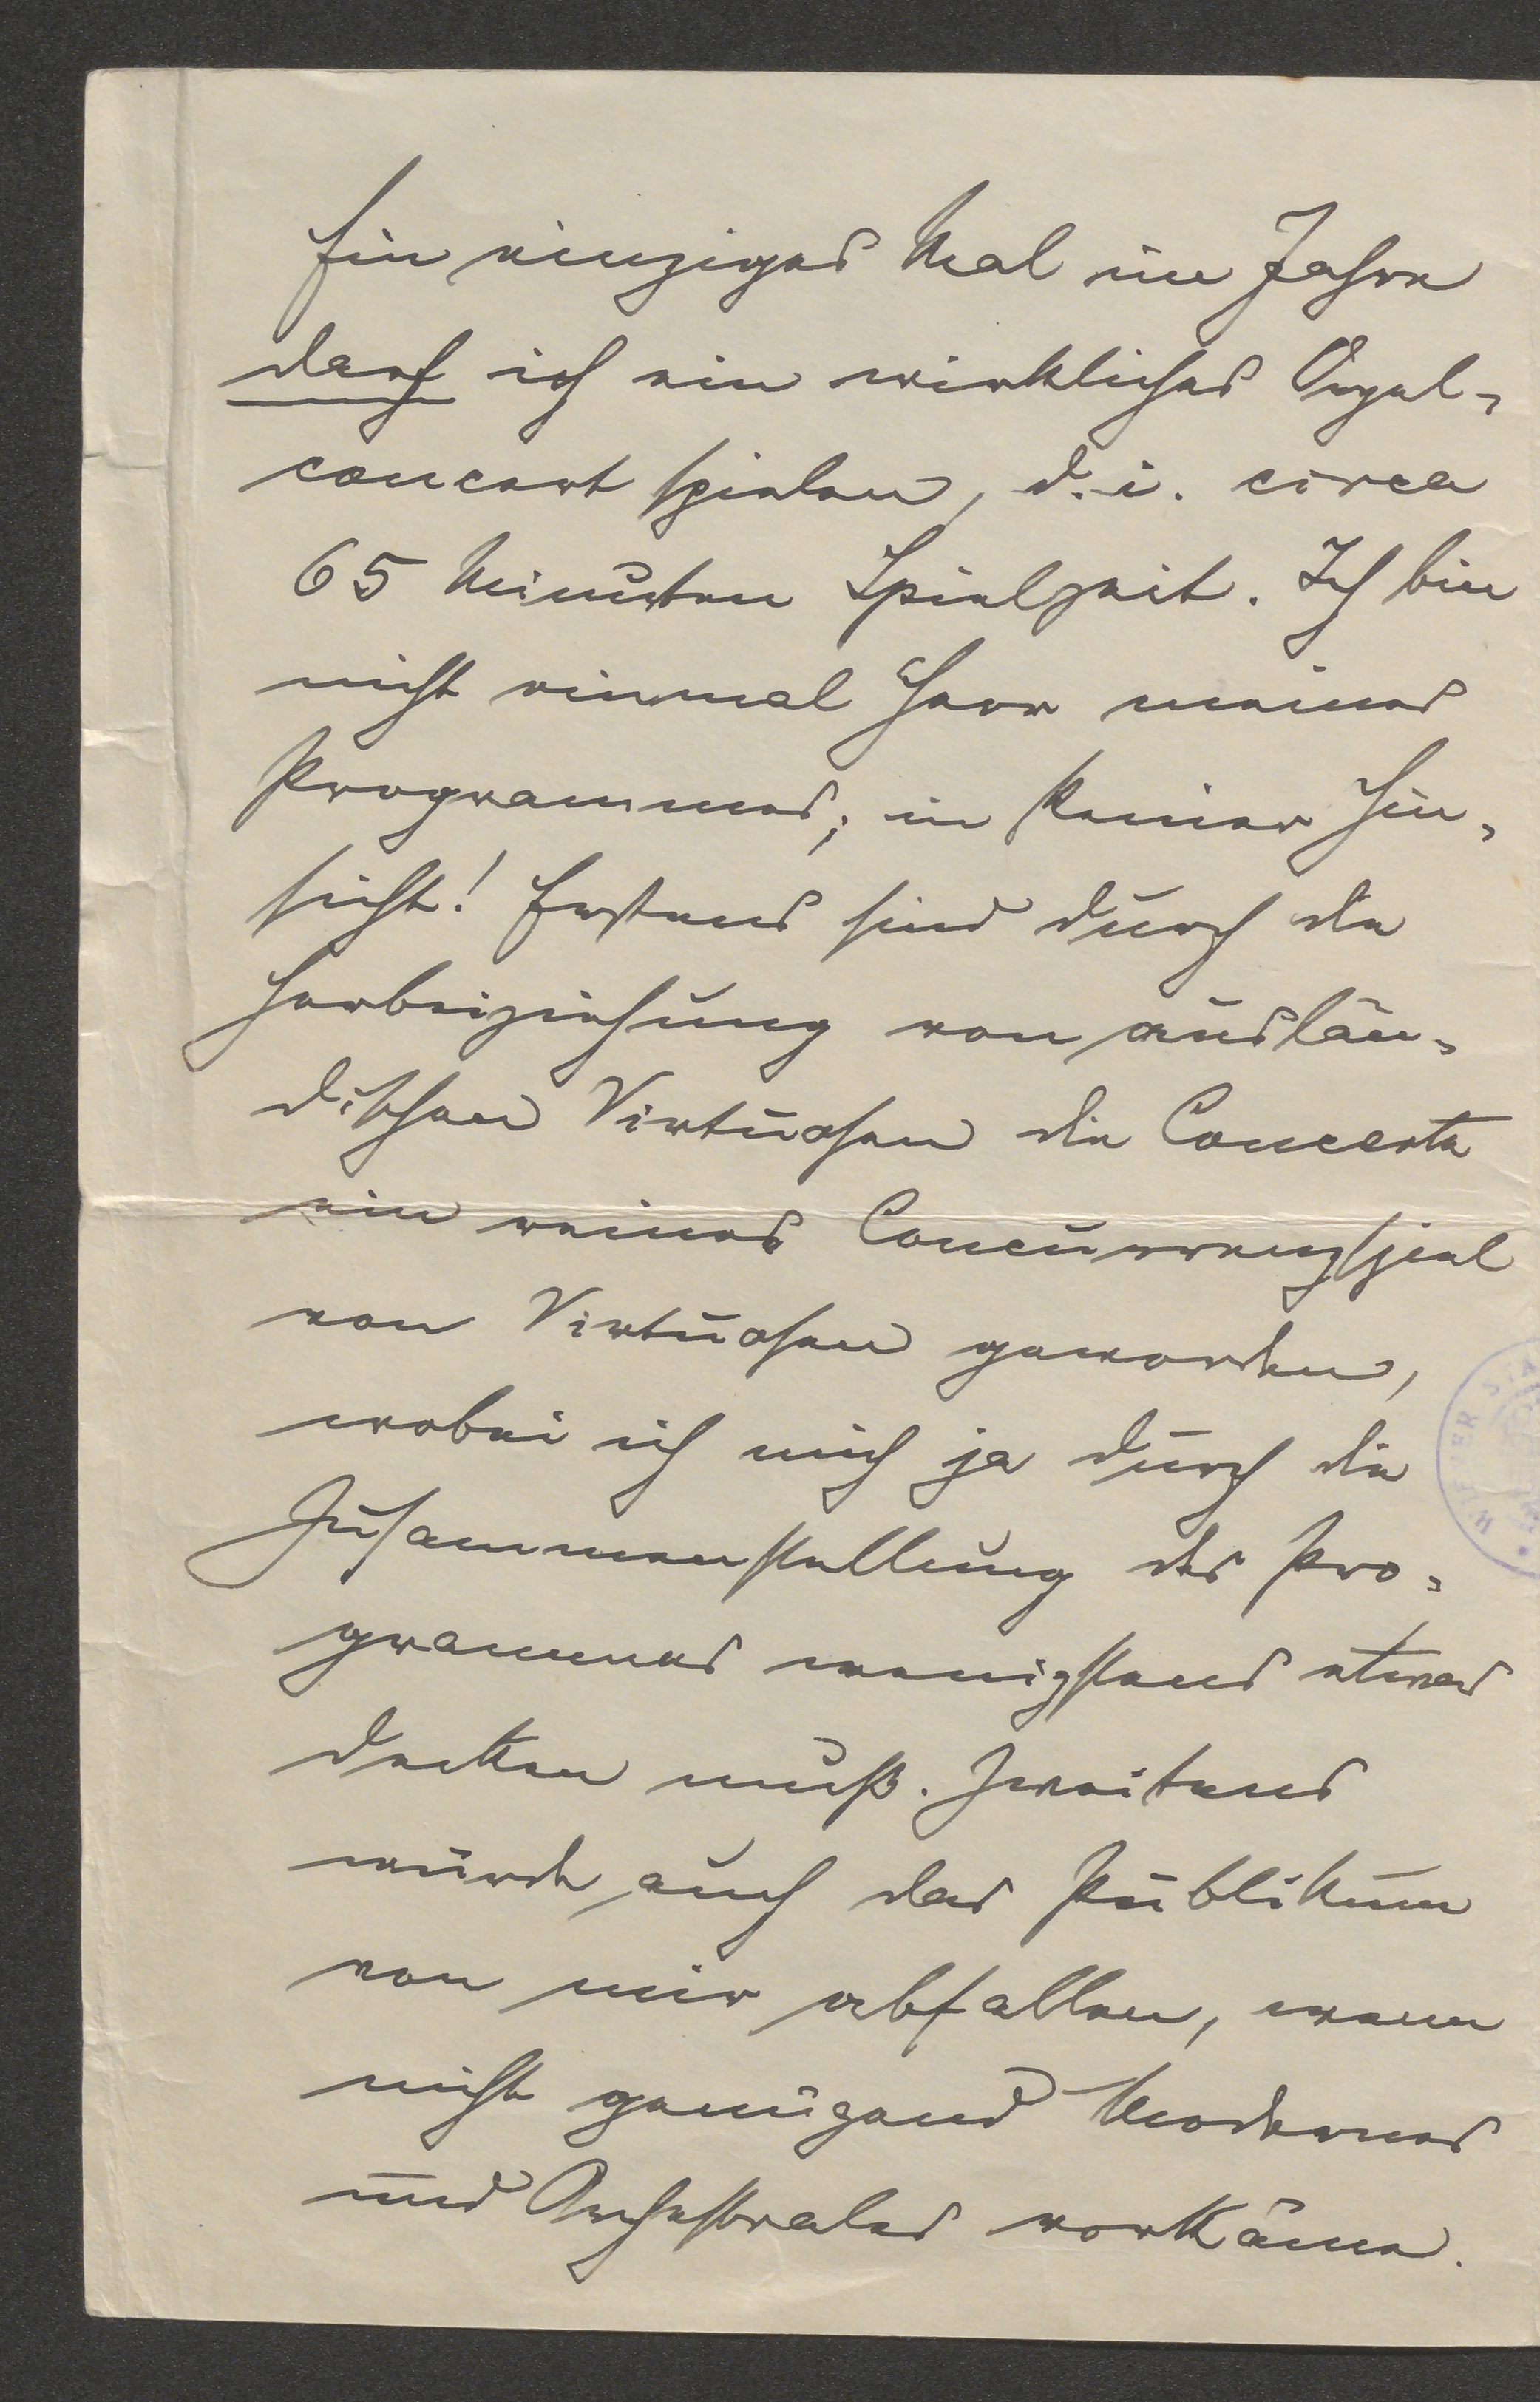 Ein einziges Mal im Jahre
darf ich ein wirkliches Orgel-
concert spielen, d. i. circa
65 Minuten Spielzeit. Ich bin
nicht einmal Herr meines
Programmes; in keiner Hin-
sicht! Erstens sind durch die
Herbeiziehung von auslän-
dischen Virtuosen die Concerte
ein reines Concurrenzspiel
von Virtuosen geworden,
wobei ich mich ja durch die
Zusammenstellung des Pro-
grammes wenigstens etwas
decken muß. Zweitens
würde auch das Publikum
von mir abfallen, wenn
nicht genügend Modernes
und Orchestrales vorkäme.
WIENER STA